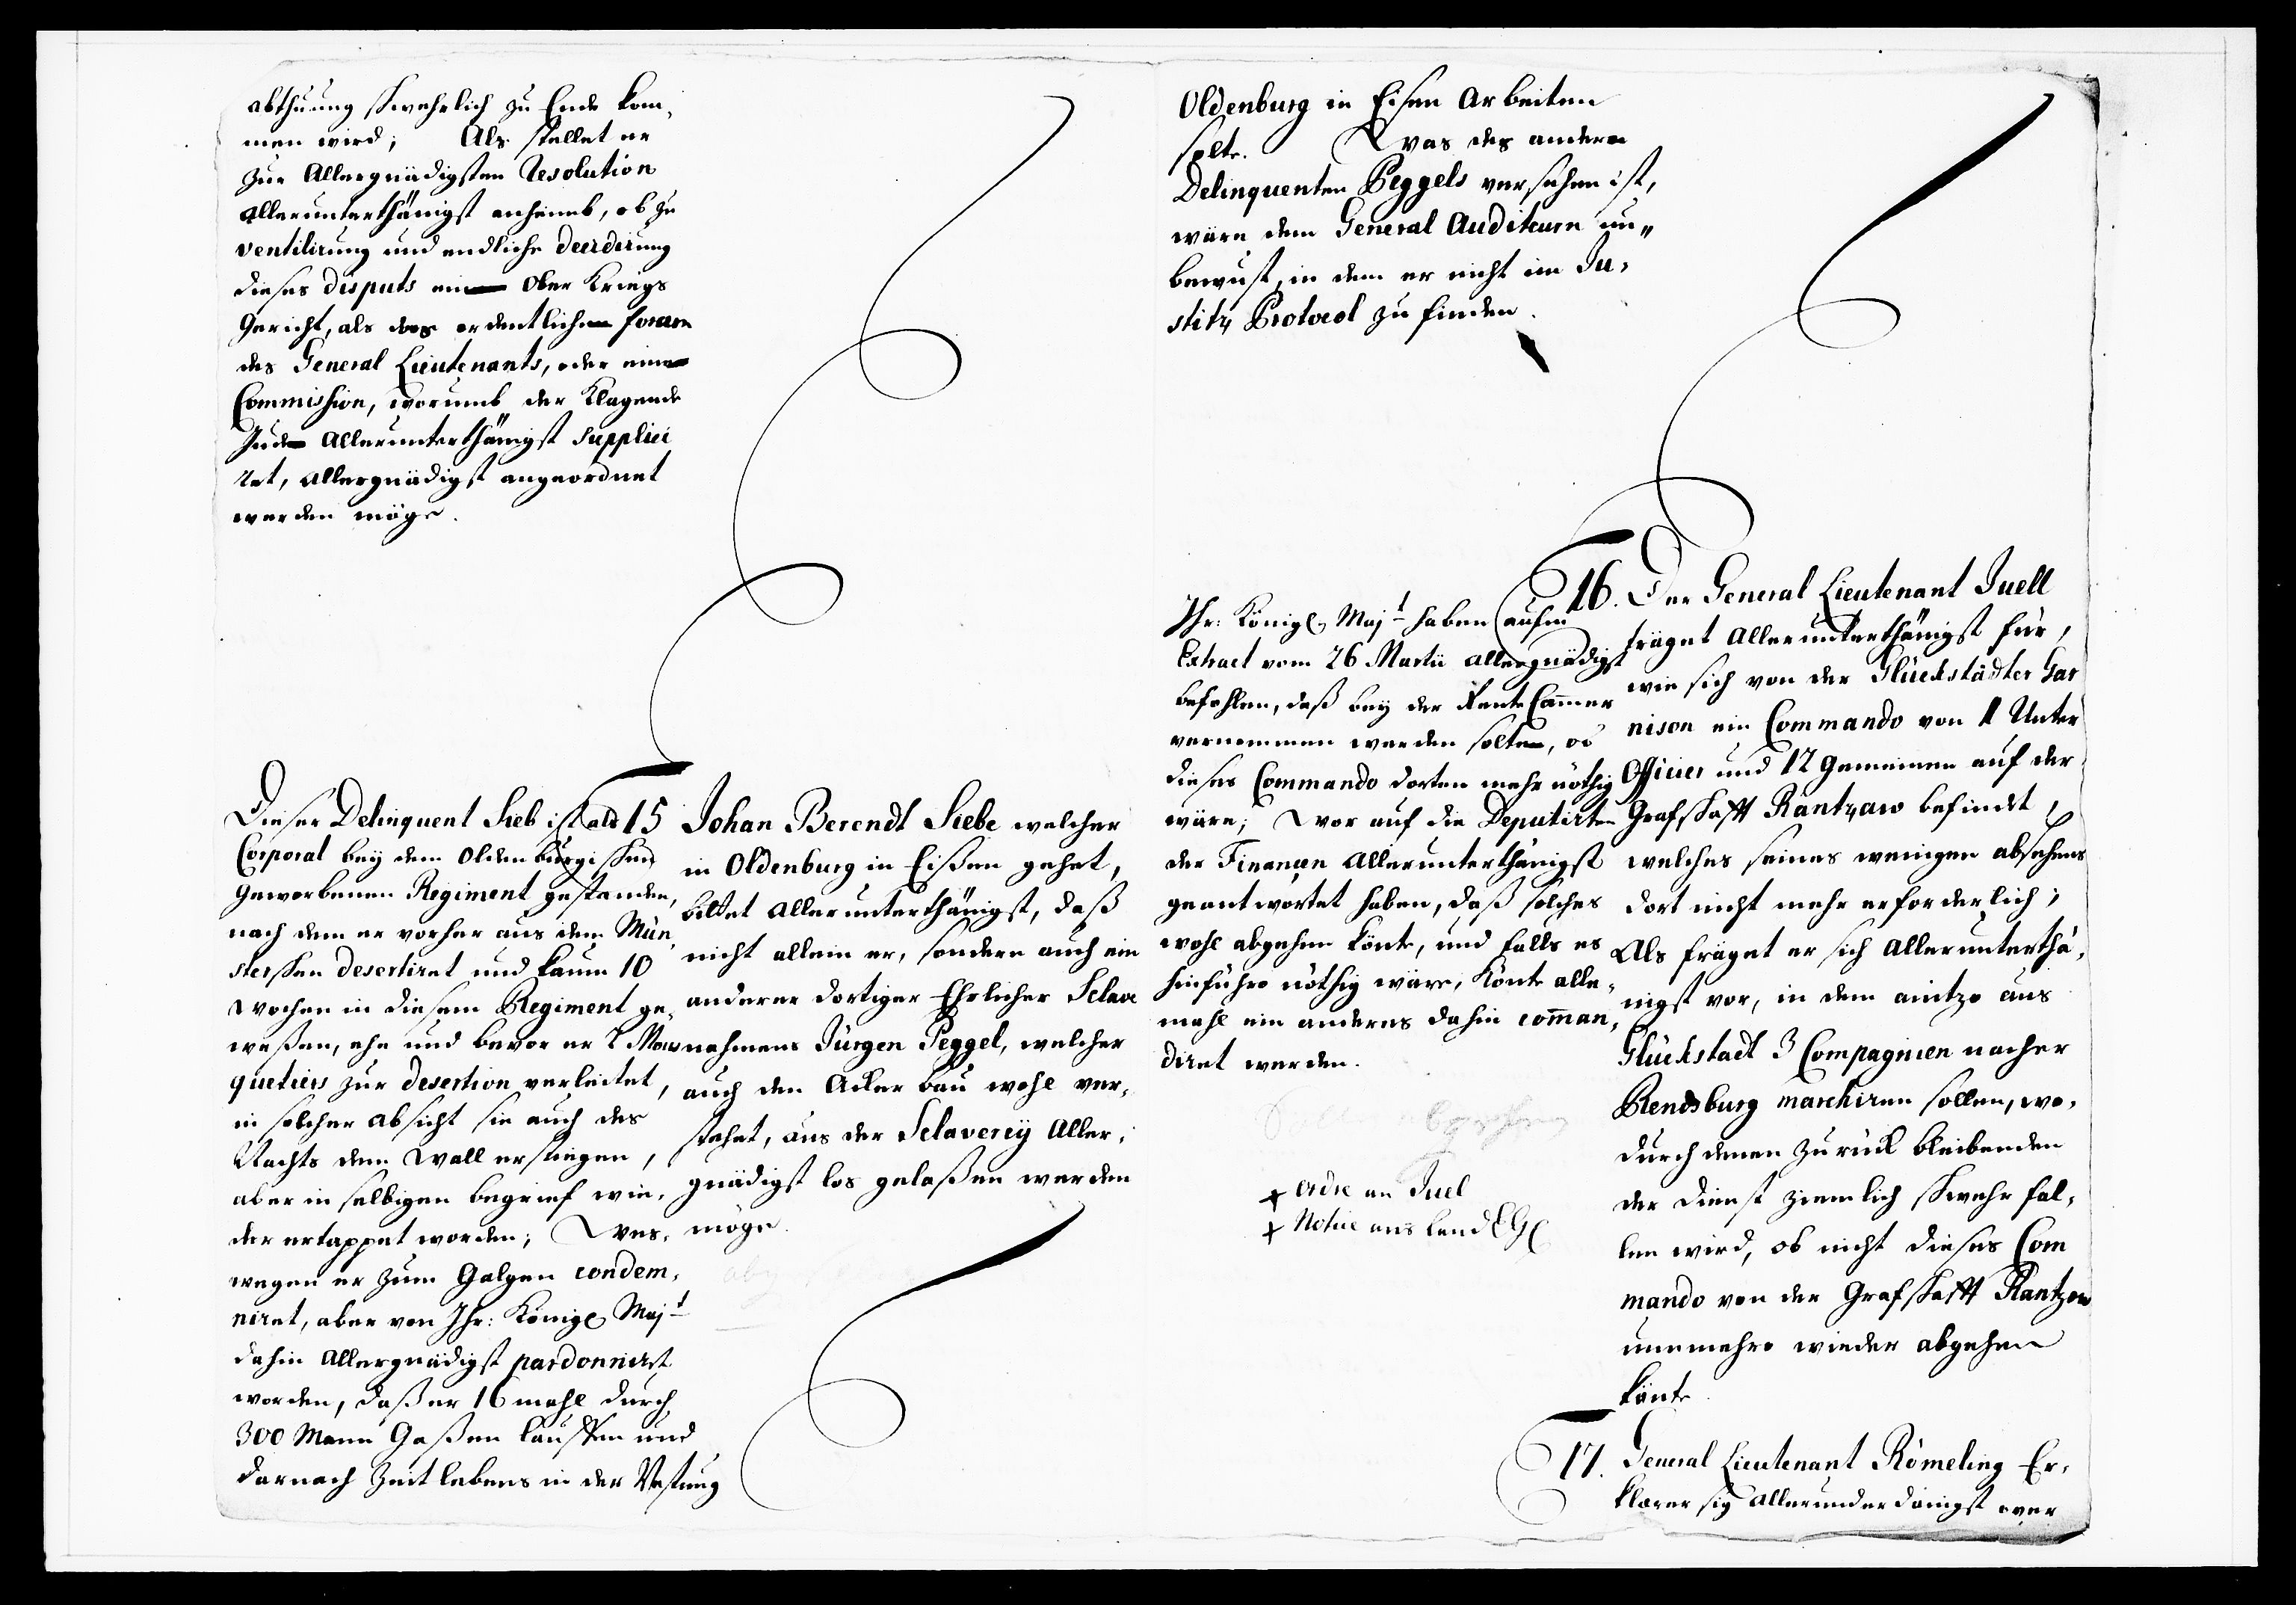 abthuung schwehrlich zu Ende kom,
men wird; Als stellet er
zur Allergnädigsten Resolution
allerunterthänigst anheimb, ob zu
ventilirung und endliche decidirung
dieses disputs ein Ober Kriegs
Gericht, als das ordentliche forum
des General Lieutenants, oder eine
Commission, worumb der Klagende
Jude Allerunterthänigst supplici
ret, allergnädigst angeordnet
werden möge.
Dieser Delinquent Sieb ist als
Corporal bey dem Oldenburgischen
Geworbenen Regiment gestanden,
nach dem er vorher aus dem Mün,
sterschen desertiret und kaum 10
Wochen in diesem Regiment ge,
weßen, ehe und bevor er 2 Mous
quetiers zur desertion verleitet,
in solcher absicht sie auch des
Nachts den Wall erstiegen,
aber in selbigen begrief wie,
der ertappet worden; Wes,
wegen er zum Galgen condem,
niret, aber von Ihr: Königl Majt
dahin Allergnädigst pardonniret
worden, daß er 16 mahl durch
300 Mann Gaßen lauffen und
darnach Zeit lebens in der Vestung
15 Johan Berendt Siebe welcher
in Oldenburg in Eißen gehet,
bittet allerunterthänigst, daß
nicht allein er, sondern auch ein
anderer dortiger Ehrlicher Sclave
nahmens Jürgen Peggel, welcher
auch den Acker bau wohl ver,
stehet, aus der Sclaverey Aller,
gnädigst los gelaßen werden
möge.
Oldenburg in Eisen Arbeiten
solte. Was des andern
Delinquenten Peggels versehen ist,
wäre dem General Auditeuren un„
bewust, in dem er nicht im Ju,
stitz Protocol zu finden.
Ihr: Königl. Majt haben aufm
Extract vom 26 Martii allergnädigst
befohlen, daß bey der Rente Cammer
vernommen werden solte, ob
dieses Commando dorten mehr nöthig
wäre; Wor auf die Deputirten
der Financen Allerunterthänigst
geantwortet haben, daß solches
wohl abgehen könte, und falls es
hinführo nöthig wäre, könte alle,
mahl ein anderes dahin comman,
diret werden.
+ Ordre an Juel
+ Notice ans Land EGC
16. Der General Lieutenant Juell
fräget Allerunterthänigst für,
wie sich von der Glückstädter Gar
nison ein Commando von 1 Unter
Officier und 12 Gemeinen auf der
Grafschafft Rantzaw befindet,
welches seines wenigen absehens
dort nicht mehr erforderlich;
Als fräget er sich Allerunterthä,
nigst vor, in dem anitzo aus
Glückstadt 3 Compagnien nacher
Rendsburg marchiren sollen, wo,
durch denen zurück bleibenden
der Dienst ziemlich schwehr fal,
len wird, ob nicht dieses Com
mando von der Grafschafft Rantzow
nunmehro wieder abgehen
könte.
17. General Lieutenant Römeling Er,
klærer sig allerunderdanigst over